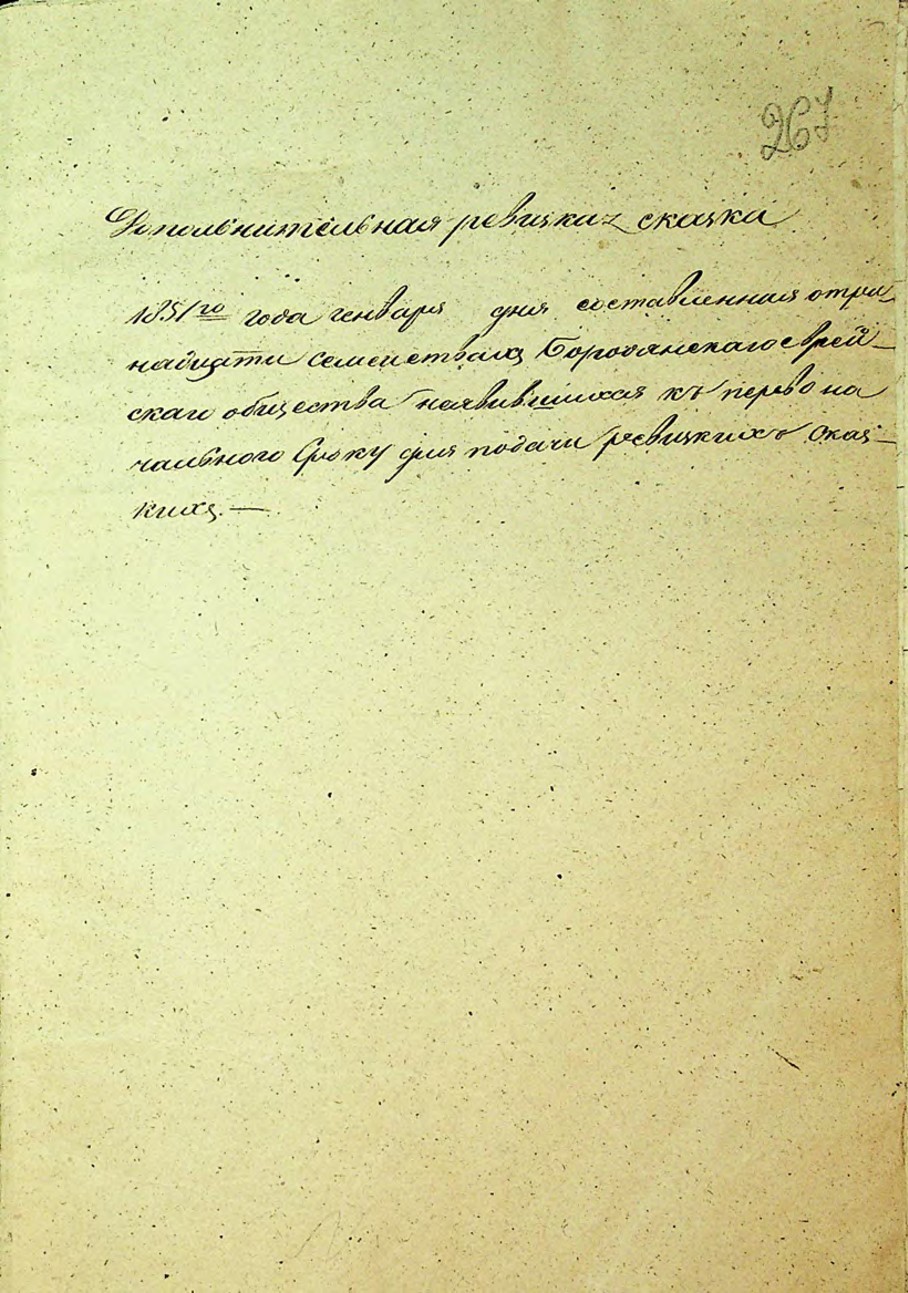 267
Дополнительная ревицкая скаска
1851го года генваря дня составленная отри
надцати семействахъ Бородянскаго еврей
скаго общества неявившихся къ перво на
чального сроку для подачи ревицкихъ скас
кихъ. —